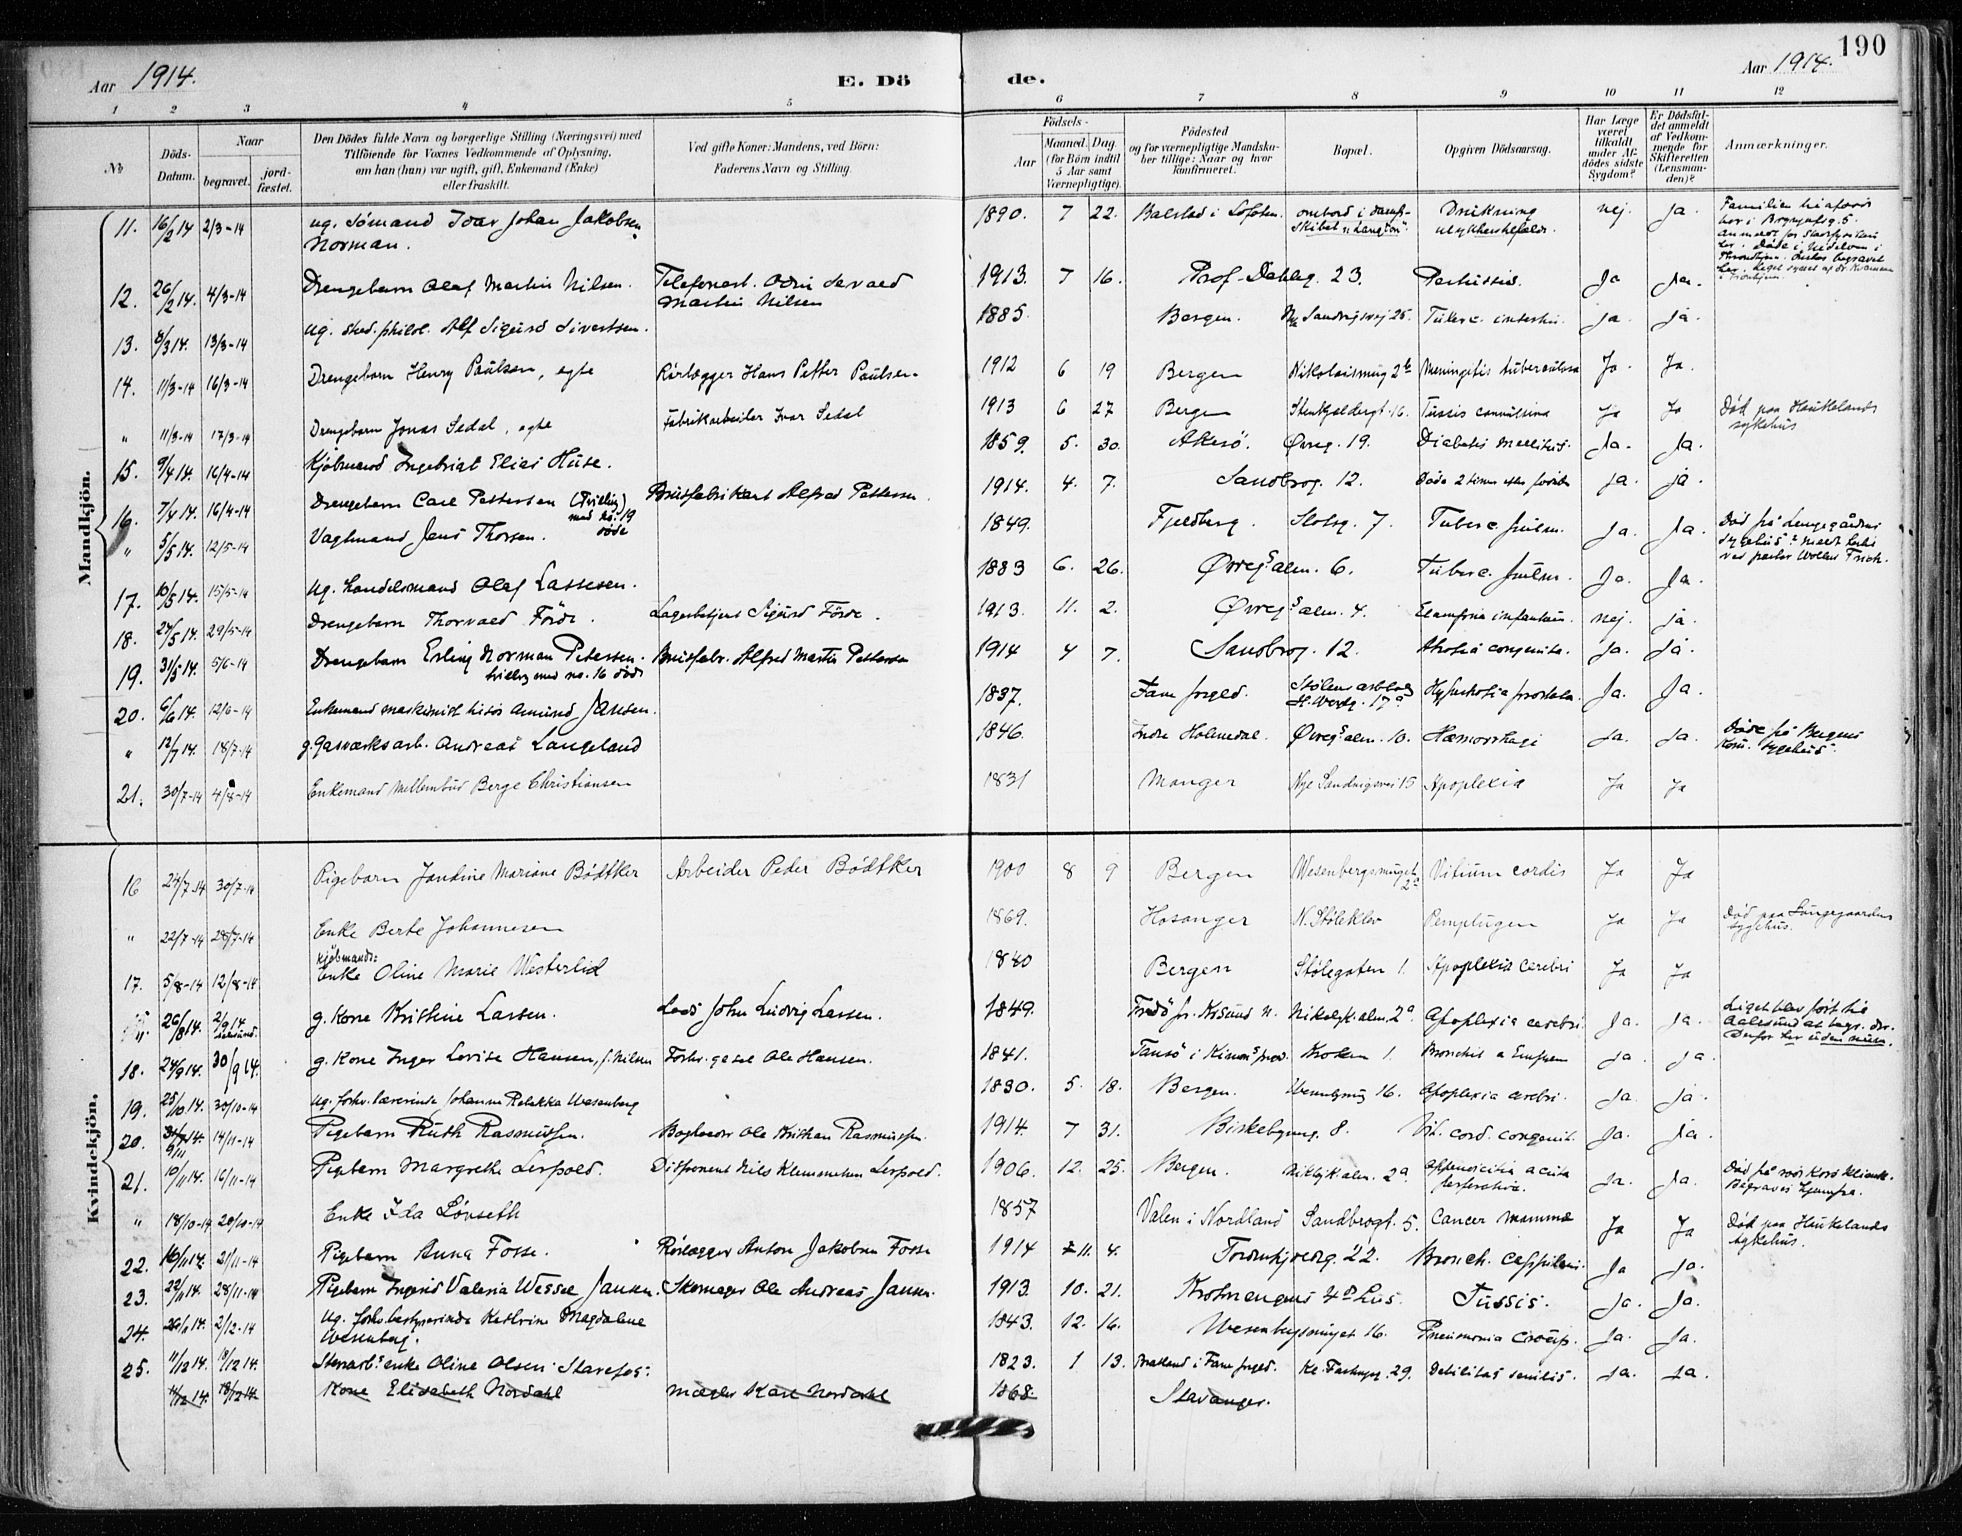 190
Aar 1914.
E. Dö de.
Aar 1914.
1 2 3 4 5 6 7 8 9 10 11 12
No
Döds-Datum.
Naar
begravet.
jord-fæstet.
Den Dödes fulde Navn og borgerlige Stilling (Næringsvei) med
Tilföiende for Voxnes Vedkommende af Oplysning,
om han (hun) var ugift, gift, Enkemand (Enke)
eller fraskilt.
Ved gifte Koner: Mandens, ved Börn:
Faderens Navn og Stilling.
Födsels-
Aar
Maaned. Dag.
(for Börn indtil
5 Aar samt
Værnepligtige).
Födested
og for værnepligtige Mandska-
ber tillige: Naar og hvor
konfirmeret.
Bopæl.
Opgiven Dödsaarsag.
Har Læge
været
tilkaldt
under Af-
dödes sidste
Sygdom?
Er Dödsfal-
det anmeldt
af Vedkom-
mende for
Skifteretten
(Lensman-
den)?
Anmærkninger.
Mandkjön.
11. 16/2 14 2/3-14 ug. Sømand Ivar Johan Jakobsen 1890. 7 22. Balstad i Lofoten. ombord i damp- Drukning nej. ja.
Norman. Skibet "Langton" ulykkestilfælde.
12. 26/2 14. 4/3-14 Drengebarn Olaf Martin Nilsen. Telefonarb. Odin Servard 1913. 7 16. Prof. Dahlsg. 23. Pertussis. Ja Ja.
Martin Nilsen
13. 8/3 14. 13/3-14 ug. stud. philol. Alf Sigurd Sivertsen. 1885. Bergen. Nye Sandvigsvej 25. Tuberc. intestin. ja. ja.
14. 11/3-14 16/3-14 Drengebarn Henry Paulsen, egte Rørlægger Hans Petter Paulsen 1912 6 19 Bergen Nikolaismug 2b Meningitis tuberculosa Ja. Ja.
" 11/3-14 17/3-14 Drengebarn Jonas Sedal, egte Fabrikarbeider Ivar Sedal 1913 6 27 Bergen Stenkjeldergt. 16. Tussis convulsiva Ja Ja Død paa Haukelands sykehus
15. 9/4 14. 16/4-14 Kjøbmand Ingebrigt Elias Huse. 1859. 5. 30. Akerö. Øvreg. 19. Diabetes mellitus. Ja. Ja.
16. 7/4 14. 16/4-14 Drengebarn Carl Pettersen (Tvilling med no. 19 døde Brusfabrikant Alfred Pettersen. 1914. 4. 7. Sandbrog. 12. Døde 2 timer efter fødselen ja. ja.
" 5/5 14. 12/5-14 Vagtmand Jens Thorsen. 1849. Fjeldberg. Slotsg. 7. Tuberc. pulm. Ja. Ja.
17. 10/5 14. 15/5-14 ug. handelsmand Olaf Lassesen. 1883 6. 26. Øvregs alm. 6. Tuberc. pulm. Ja. Ja.
18. 24/5 14. 29/5-14 Drengebarn Thorvald Förde. Lagerbetjent Sigurd Förde. 1913. 11. 2. Øvregs alm. 4. Eclampsia infantum. nej. ja.
19. 31/5 14. 5/6-14 Drengebarn Erling Norman Petersen. Brusfabr. Alfred Martin Pettersen 1914 4 7. Sandbrog. 12. Atrofia congenita. Ja. ja.
tvilling med no. 16 døde
20. 6/6 14. 12/6-14 Enkemand maskinist Amund Jansen. 1837. Fane prgjeld. 17a Hypertrofia prostata. Ja. Ja.
" 12/7 14. 18/7-14 g. Gasværksarb. Andreas Langeland 1846. Indre Holmedal. Øvregs alm. 10. Hæmorrhagi Ja. Ja. Døde på Bergens Kom. sygehus.
21. 30/7-14 4/8-14 Enkemand Mellembud Berge Christiansen 1831 Manger Nye Sandvigsvei 15 Apoplexia Ja Ja
Kvindekjön.
16 24/7-14 30/7-14 Pigebarn Jandine Mariane Bødtker Arbeider Peder Bødtker 1900 8 9 Bergen Wesenbergsmuget 2c Vitium cordis Ja Ja
" 22/7-14 28/7-14 Enke Berte Johannesen 1869. Hosanger N. Støleklev Ja Ja Død paa Lungegaardens sygehus.
17. 5/8-14 12/8-14 kjøbmands: Enke Oline Marie Westerlid 1840 Bergen Stølegaten 1. Apoplexia cerebri Ja Ja
" 26/8 14. 2/9 14 g. Kone Kristine Larsen. Lods John Ludvig Larsen. 1849. Fredö pr. Krsund N. Nikolajk. alm. 2a. Apoplexia cerebri. Ja. Ja. Liget blev ført til Aalesund at begr. der. Derfor her uden num.
18. 24/9 14. 30/9 14. g. Kone Inger Lovise Hansen, f. Nilsen Forhv. gesel Ole Hansen. 1841. Kroken 1. Bronchit a Emfysem ja. ja
19. 25/10 14. 30/10-14 ug. forhv. Lærerinde Johanna Rebekka Wesenberg 1830. 5. 18. Bergen. Wesenbgsmug 16. Apoplexia cerebri. Ja. ja
20. 9/11 14/11-14 Pigebarn Ruth Rasmussen. Bogholder Ole Kristian Rasmussen. 1914. 7 31. Biskebgsmug. 8. Vit. cord. congenit. Ja. Ja.
21. 10/11 14. 16/11-14 Pigebarn Margrethe Lerpold. Disponent Nils Klemmetsen Lerpold. 1906. 12. 25. Bergen. Nikljk. alm. 2a. Appendicitia acuta perforativa. Ja. Ja. Død på röde Kors Klinik. Begraves hjemfra.
" 18/10-14 20/10-14 Enke Ida Løvseth 1857 Valen i Nordland Sandbrogt. 5. Cancer mammæ Ja Ja Død paa Haukelands sykehus.
22. 16/11 14. 21/11-14 Pigebarn Anna Fosse. Rørlægger Anton Jakobsen Fosse 1914 11. 4. 22. Bronch. capillari. Ja ja.
23. 22/11 14. 28/11-14 Pigebarn Ingrid Valeria Wessel Jansen. Skomager Ole Andreas Jansen. 1913. 10. 21. Krohnengens 4de Hus. Tussis. Ja. Ja.
24. 26/11 14. 2/12-14 ug. forhv. bestyrerinde Kathrine Magdalene Wesenberg. 1843. 12. 16. Wesenbgsmuget 16. Pneumonia croup. Ja. Ja.
25. 11/12 14. 18/12 14. Stenarb.s enke Oline Olsen Starefos. 1823. 1 13. i Fane prgjeld. 29. Debilitas senilis. Ja. Ja.
11/12 14. 18/12 14. Kone Elisabeth Nordahl Mægler Karl Nordahl 1868 Stavanger.